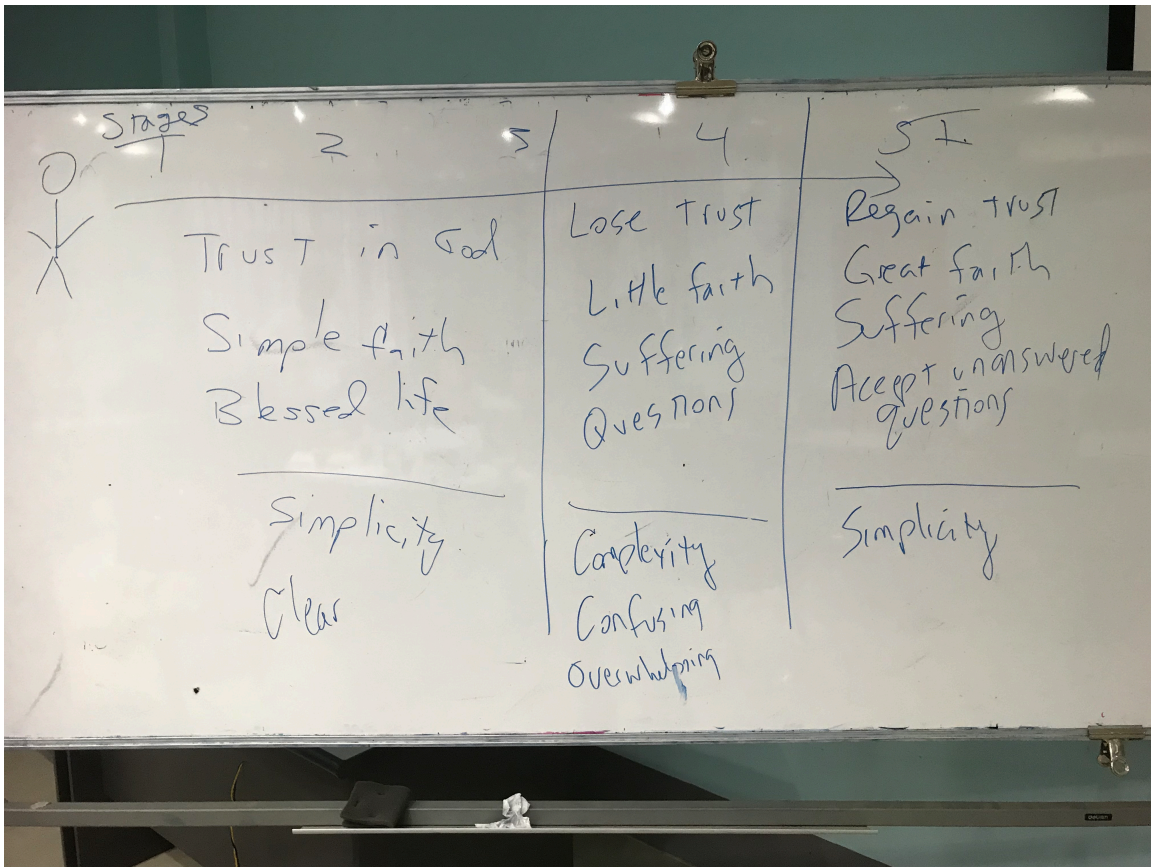 Stages
1 2 3
Trust in God
Simple faith
Blessed life
Simplicity
Clear
4
Lose trust
Little faith
Suffering
Questions
Complexity
Confusing
Overwhelming
5 I
Regain trust
Great faith
Suffering
Accept unanswered
questions
Simplicity